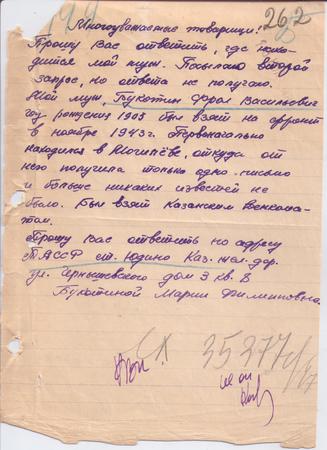 262
Многоуважаемые товарищи!
Прошу Вас ответить, где нахо-
дится мой муж. Посылаю второй
запрос, но ответа не получаю.
Мой муж, Букотин Фрол Васильевич
год рождения 1905 был взят на фронт
в ноябре 1943 г. Первоначально
находился в Могилёве, откуда от
него получила только одно письмо
и больше никаких известей не
было. Был взят Казанским Военкома-
том.
Прошу Вас ответить по адресу
ТАССР ст. Юдино Каз. жел. дор.
ул. Чернышевского дом 3 кв. 8
Букотиной Марии Филипповне.
35377с/